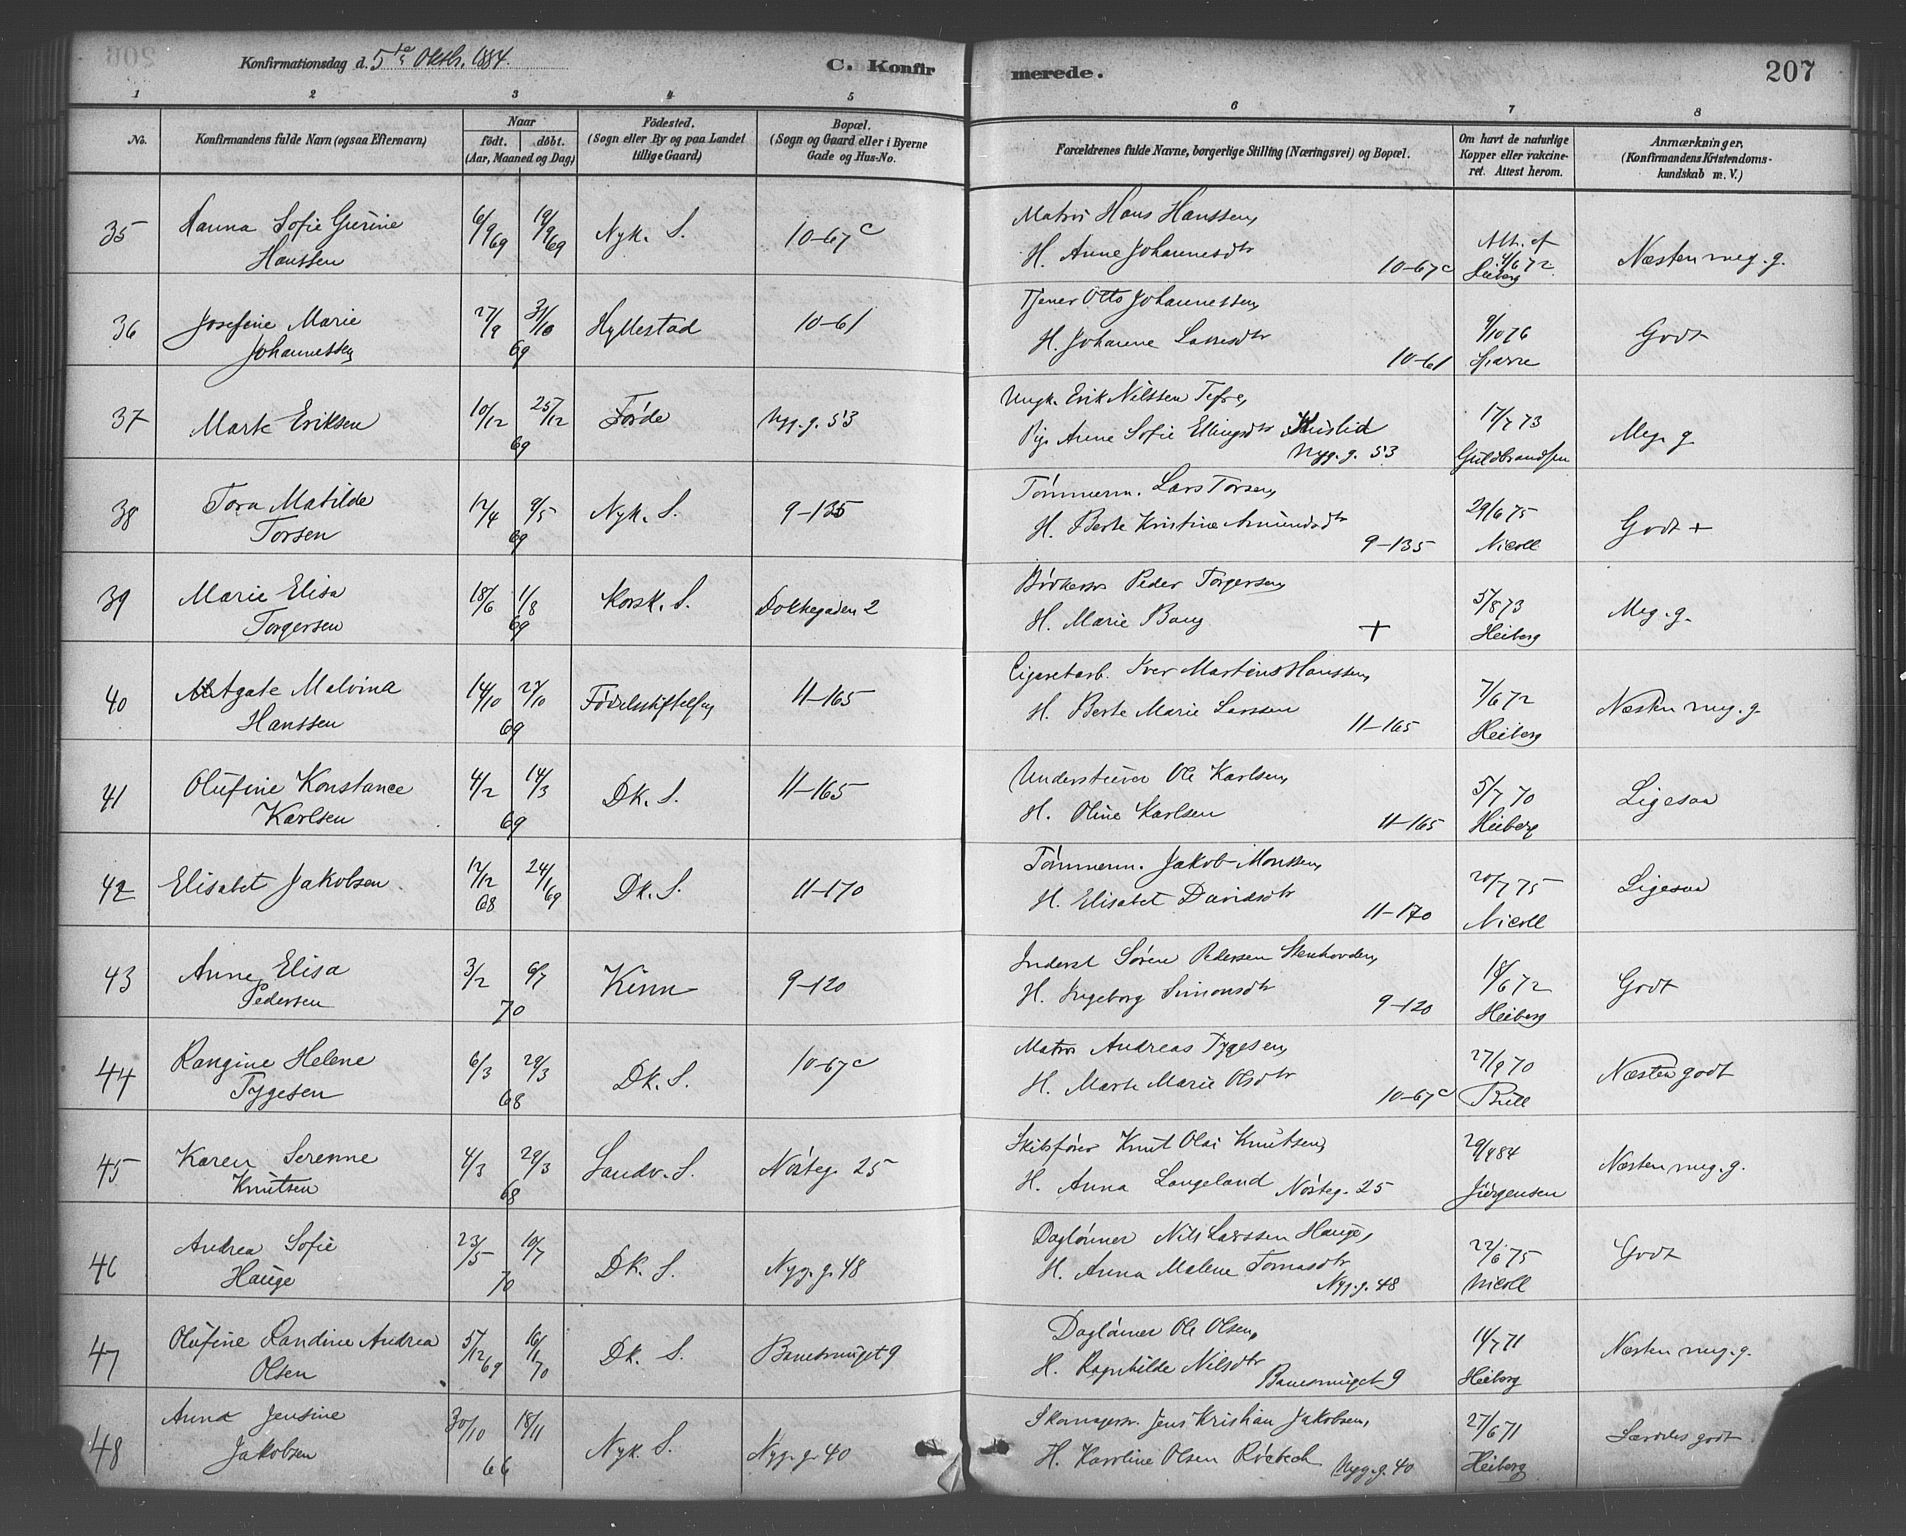 Konfirmationsdag d. 5te Oktbr. 1884.
C. Konfirmerede.
207
1 2 3 4 5 6 7 8
No.
Konfirmandens fulde Navn (ogsaa Efternavn)
Naar
født. døbt.
(Aar, Maaned og Dag)
Fødested.
(Sogn eller By og paa Landet
tillige Gaard)
Bopæl.
(Sogn og Gaard eller i Byerne
Gade og Hus-No.
Forældrenes fulde Navne, borgerlige Stilling (Næringsvei) og Bopæl.
Om havt de naturlige
Kopper eller vakcine-
ret. Attest herom.
Anmærkninger,
(Konfirmandens Kristendoms-
kundskab m. V.)
35 Hanna Sofie Gurine
Hanssen
6/9 69 19/9 69 Nyk. S. 10-67c
Matros Hans Hanssen,
H. Anne Johannesdtr 10-67c
Att. af
4/6 72
Heiberg
Næsten meg. g.
36 Josefine Marie
Johannessen
27/9 31/10 69 Hyllestad 10-61
Tjener Otto Johannessen,
H. Johanne Larsdtr 10-61
9/10 76
Sparre
Godt
37 Marte Eriksen
10/12 25/12 69 Førde Nyg. g. 53
Ungk. Erik Nilssen Tefre,
Pig. Anne Sofie Ellingsdtr
Nyg. g. 53
17/7 73
Guldbrandsen
Meg. g.
38 Tora Matilde
Torsen
12/4 9/5 69 Nyk. S. 9-135
Tømmerm. Lars Torsen,
H. Berte Kristine Amundsdtr
9-135
29/6 75
Nicoll
Godt +
39 Marie Elisa
Torgersen
18/6 1/8 69 Korsk. S. Dokkegaden 2
Bødkersv. Peder Torgersen,
H. Marie Bang +
5/8 73
Heiberg
Meg. g.
40 Agate Malvina
Hanssen
14/10 27/10 69 Fødselsstiftelsen 11-165
Cigaretarb. Iver Martinus Hanssen,
H. Berte Marie Larssen
11-165
7/6 72
Heiberg
Næsten meg. g.
41 Olufine Konstance
Karlsen
4/2 14/3 69 Dk. S. 11-165
Understuer Ole Karlsen,
H. Oline Karlsen 11-165
5/7 70
Heiberg
Ligesaa
42 Elisabet Jakobsen.
12/12 68 24/1 69 Dk. S. 11-170
Tømmerm. Jakob Monssen,
H. Elisabet Davidsdtr
11-170
20/7 75
Nicoll
Ligesaa
43 Anne Elisa
Pedersen
3/2 6/7 70 Kinn 9-120
Inderst Søren Pedersen Stenhovden,
H. Ingeborg Simonsdtr
9-120
18/6 72
Heiberg
Godt
44 Rangine Helene
Tygesen
6/3 29/3 68 Dk. S. 10-67c
Matros Andreas Tygesen,
H. Marte Marie Olsdtr
10-67c
27/9 70
Büll
Næsten godt
45 Karen Serenne
Knutsen
4/3 29/3 68 Sandv. S. Nøsteg. 25
Skibsfører Knut Olai Knutsen,
H. Anna Langeland Nøsteg. 25
29/4 84
Jürgensen
Næsten meg. g.
46 Andrea Sofie
Hauge
23/5 10/7 70 Dk. S. Nyg. g. 48
Daglønner Nils Larssen Hauge,
H. Anna Malene Tomasdtr
Nyg. g. 48
22/6 75
Nicoll
Godt
47 Olufine Randine Andrea
Olsen
5/12 69 16/1 70 Dk. S. Banesmuget 9
Dagløner Ole Olsen,
H. Ragnhilde Nilsdtr
Banesmuget 9
14/7 71
Heiberg
Næsten meg. g.
48 Anna Jensine
Jakobsen
30/10 18/11 66 Nyk. S. Nyg. g. 40
Skomagersv. Jens Kristian Jakobsen,
H. Karoline Olsen Nyg. g. 40
27/6 71
Heiberg
Særdeles godt